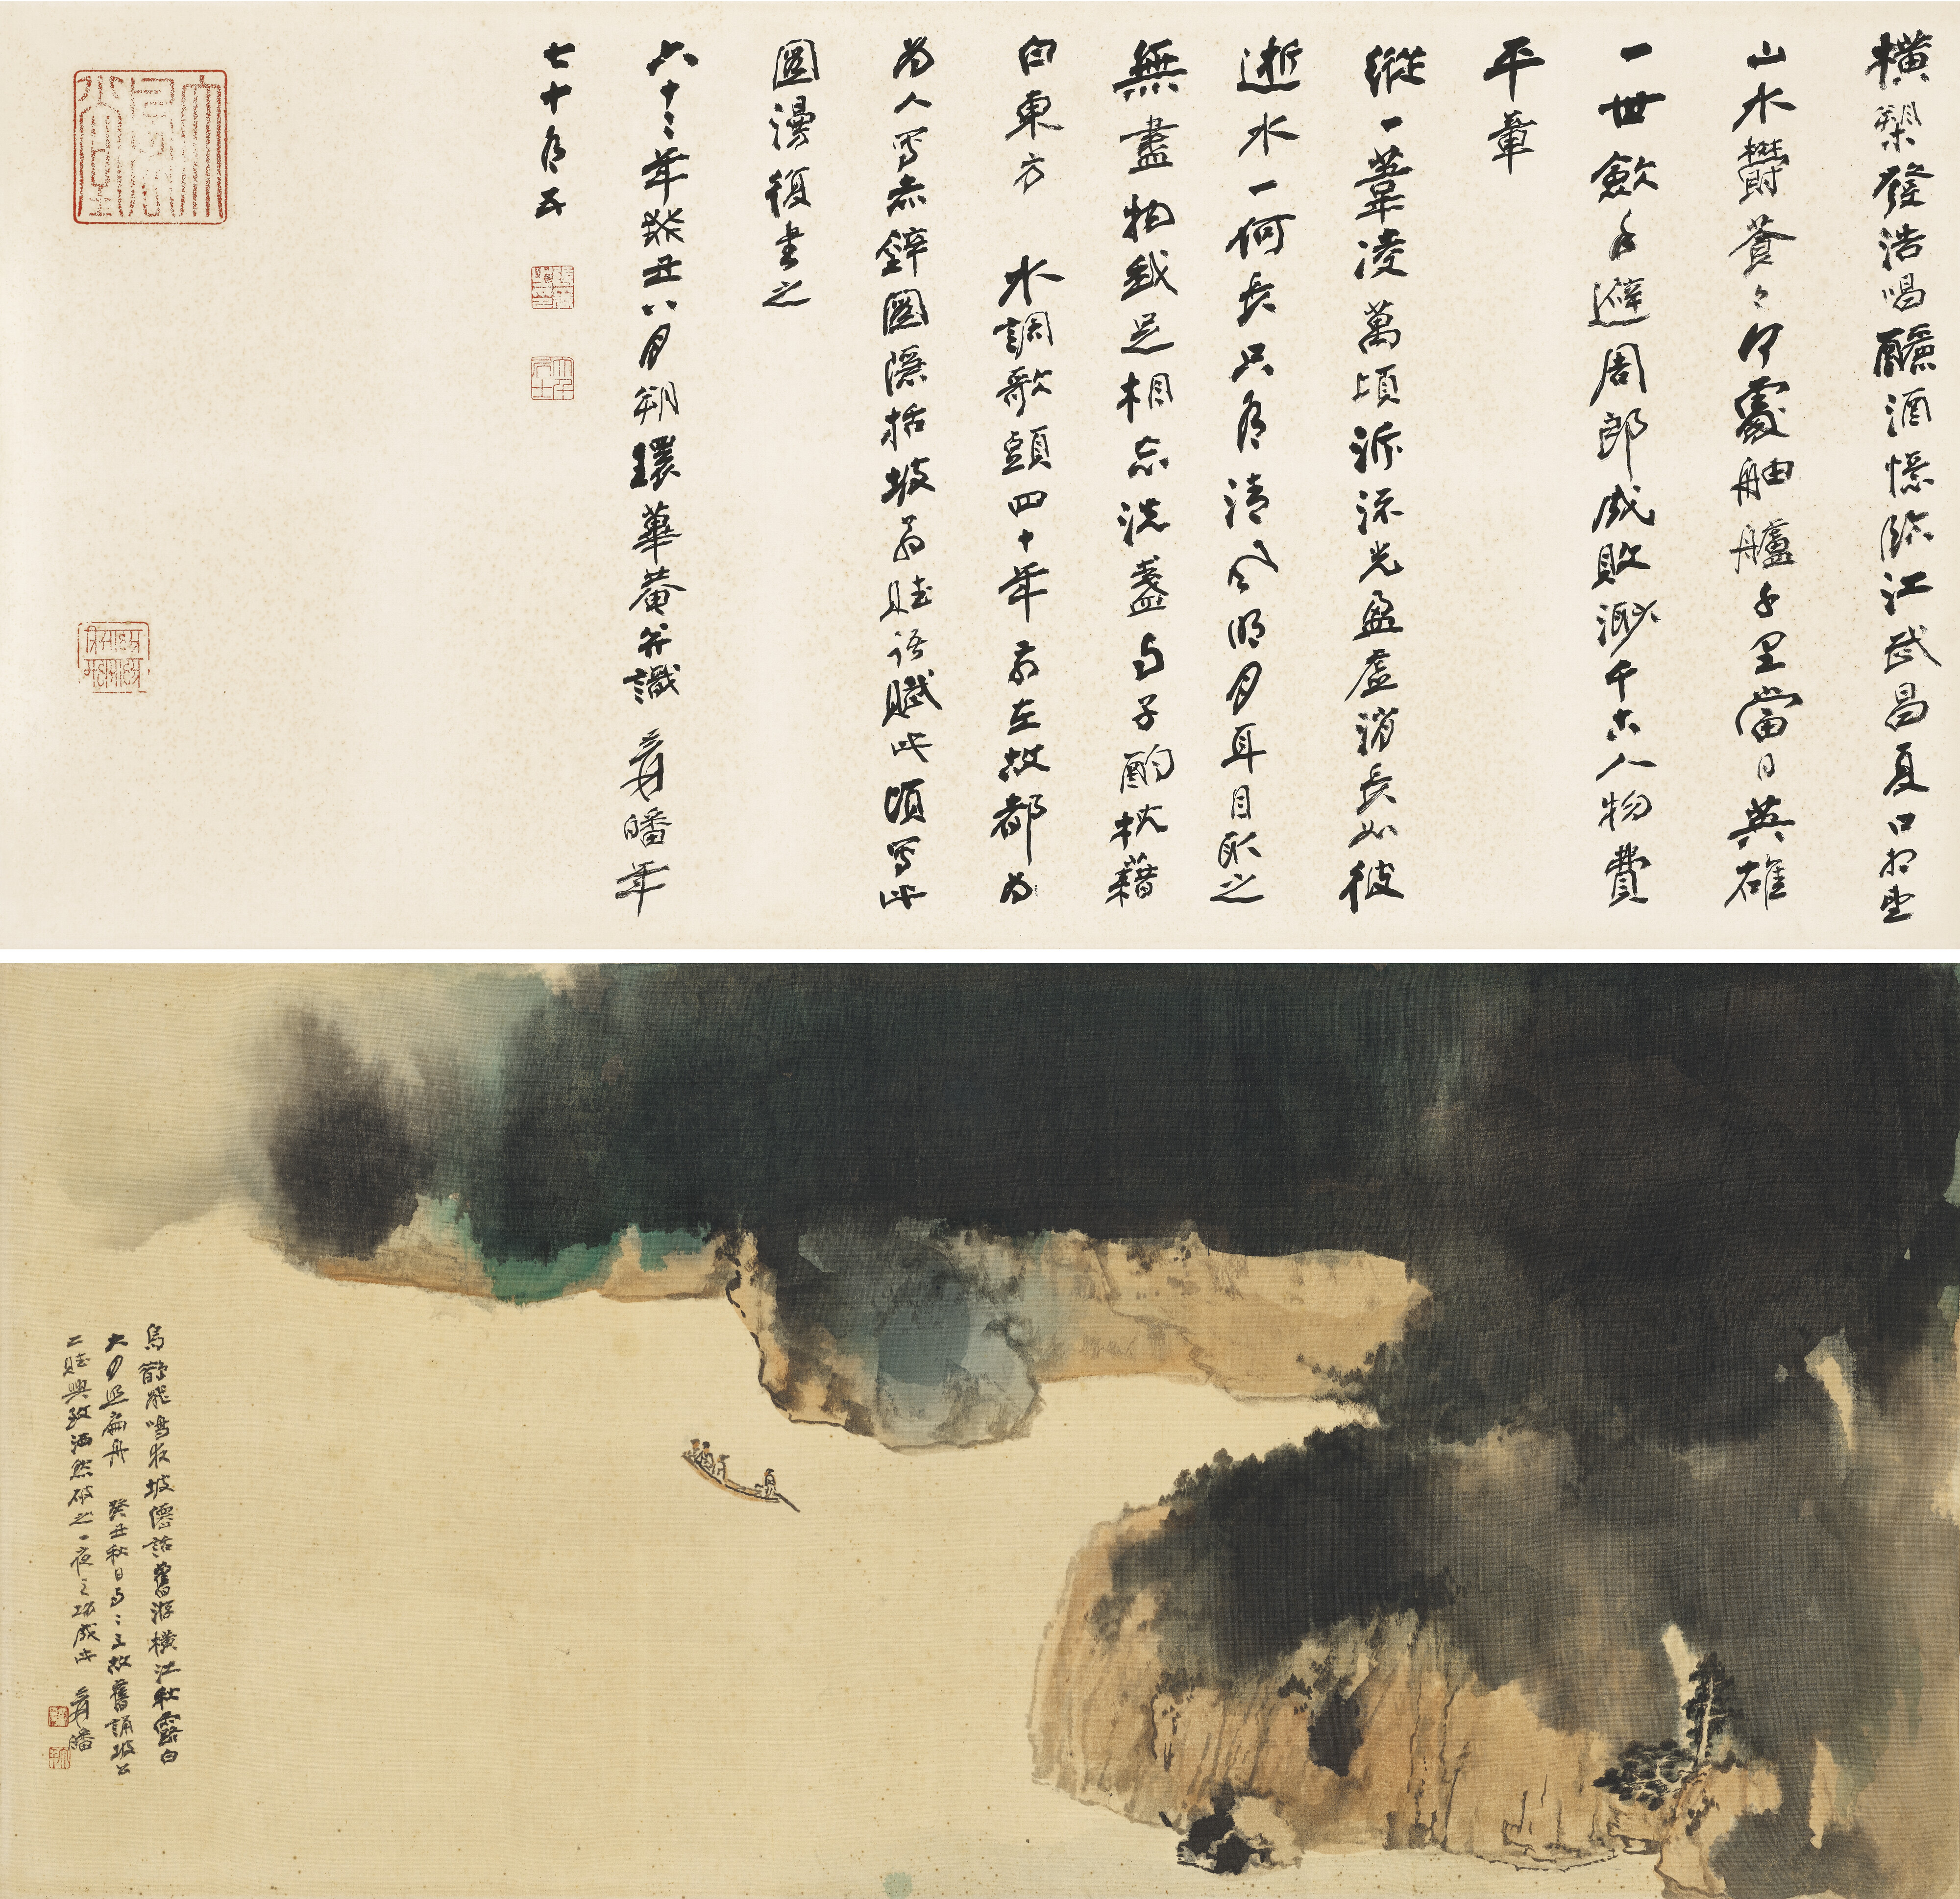 橫槊發浩唱釃酒憶臨江武昌夏口相望
山水欝蒼〻何處舳艫千里當日英雄
一世歛手避周郎成敗渺千古人物費
平章
縱一葦凌萬頃泝流光盈虛消長如彼
逝水一何長只有清風明月耳目取之
無盡物我足相忘洗盞与子酌枕藉
白東方 水調歌頭四十年前在故都為
為人寫赤壁圖隱括坡翁賦語賦此頃寫此
圖漫復書之
六十二年癸丑八月朔環蓽菴并識 爰皤年
七十有五
大風堂
烏鵲飛鳴夜坡僊話舊游橫江秋露白
大月照扁舟 癸丑秋日与二三故舊誦坡公
二賦興致洒然破之一夜之功成此 爰皤